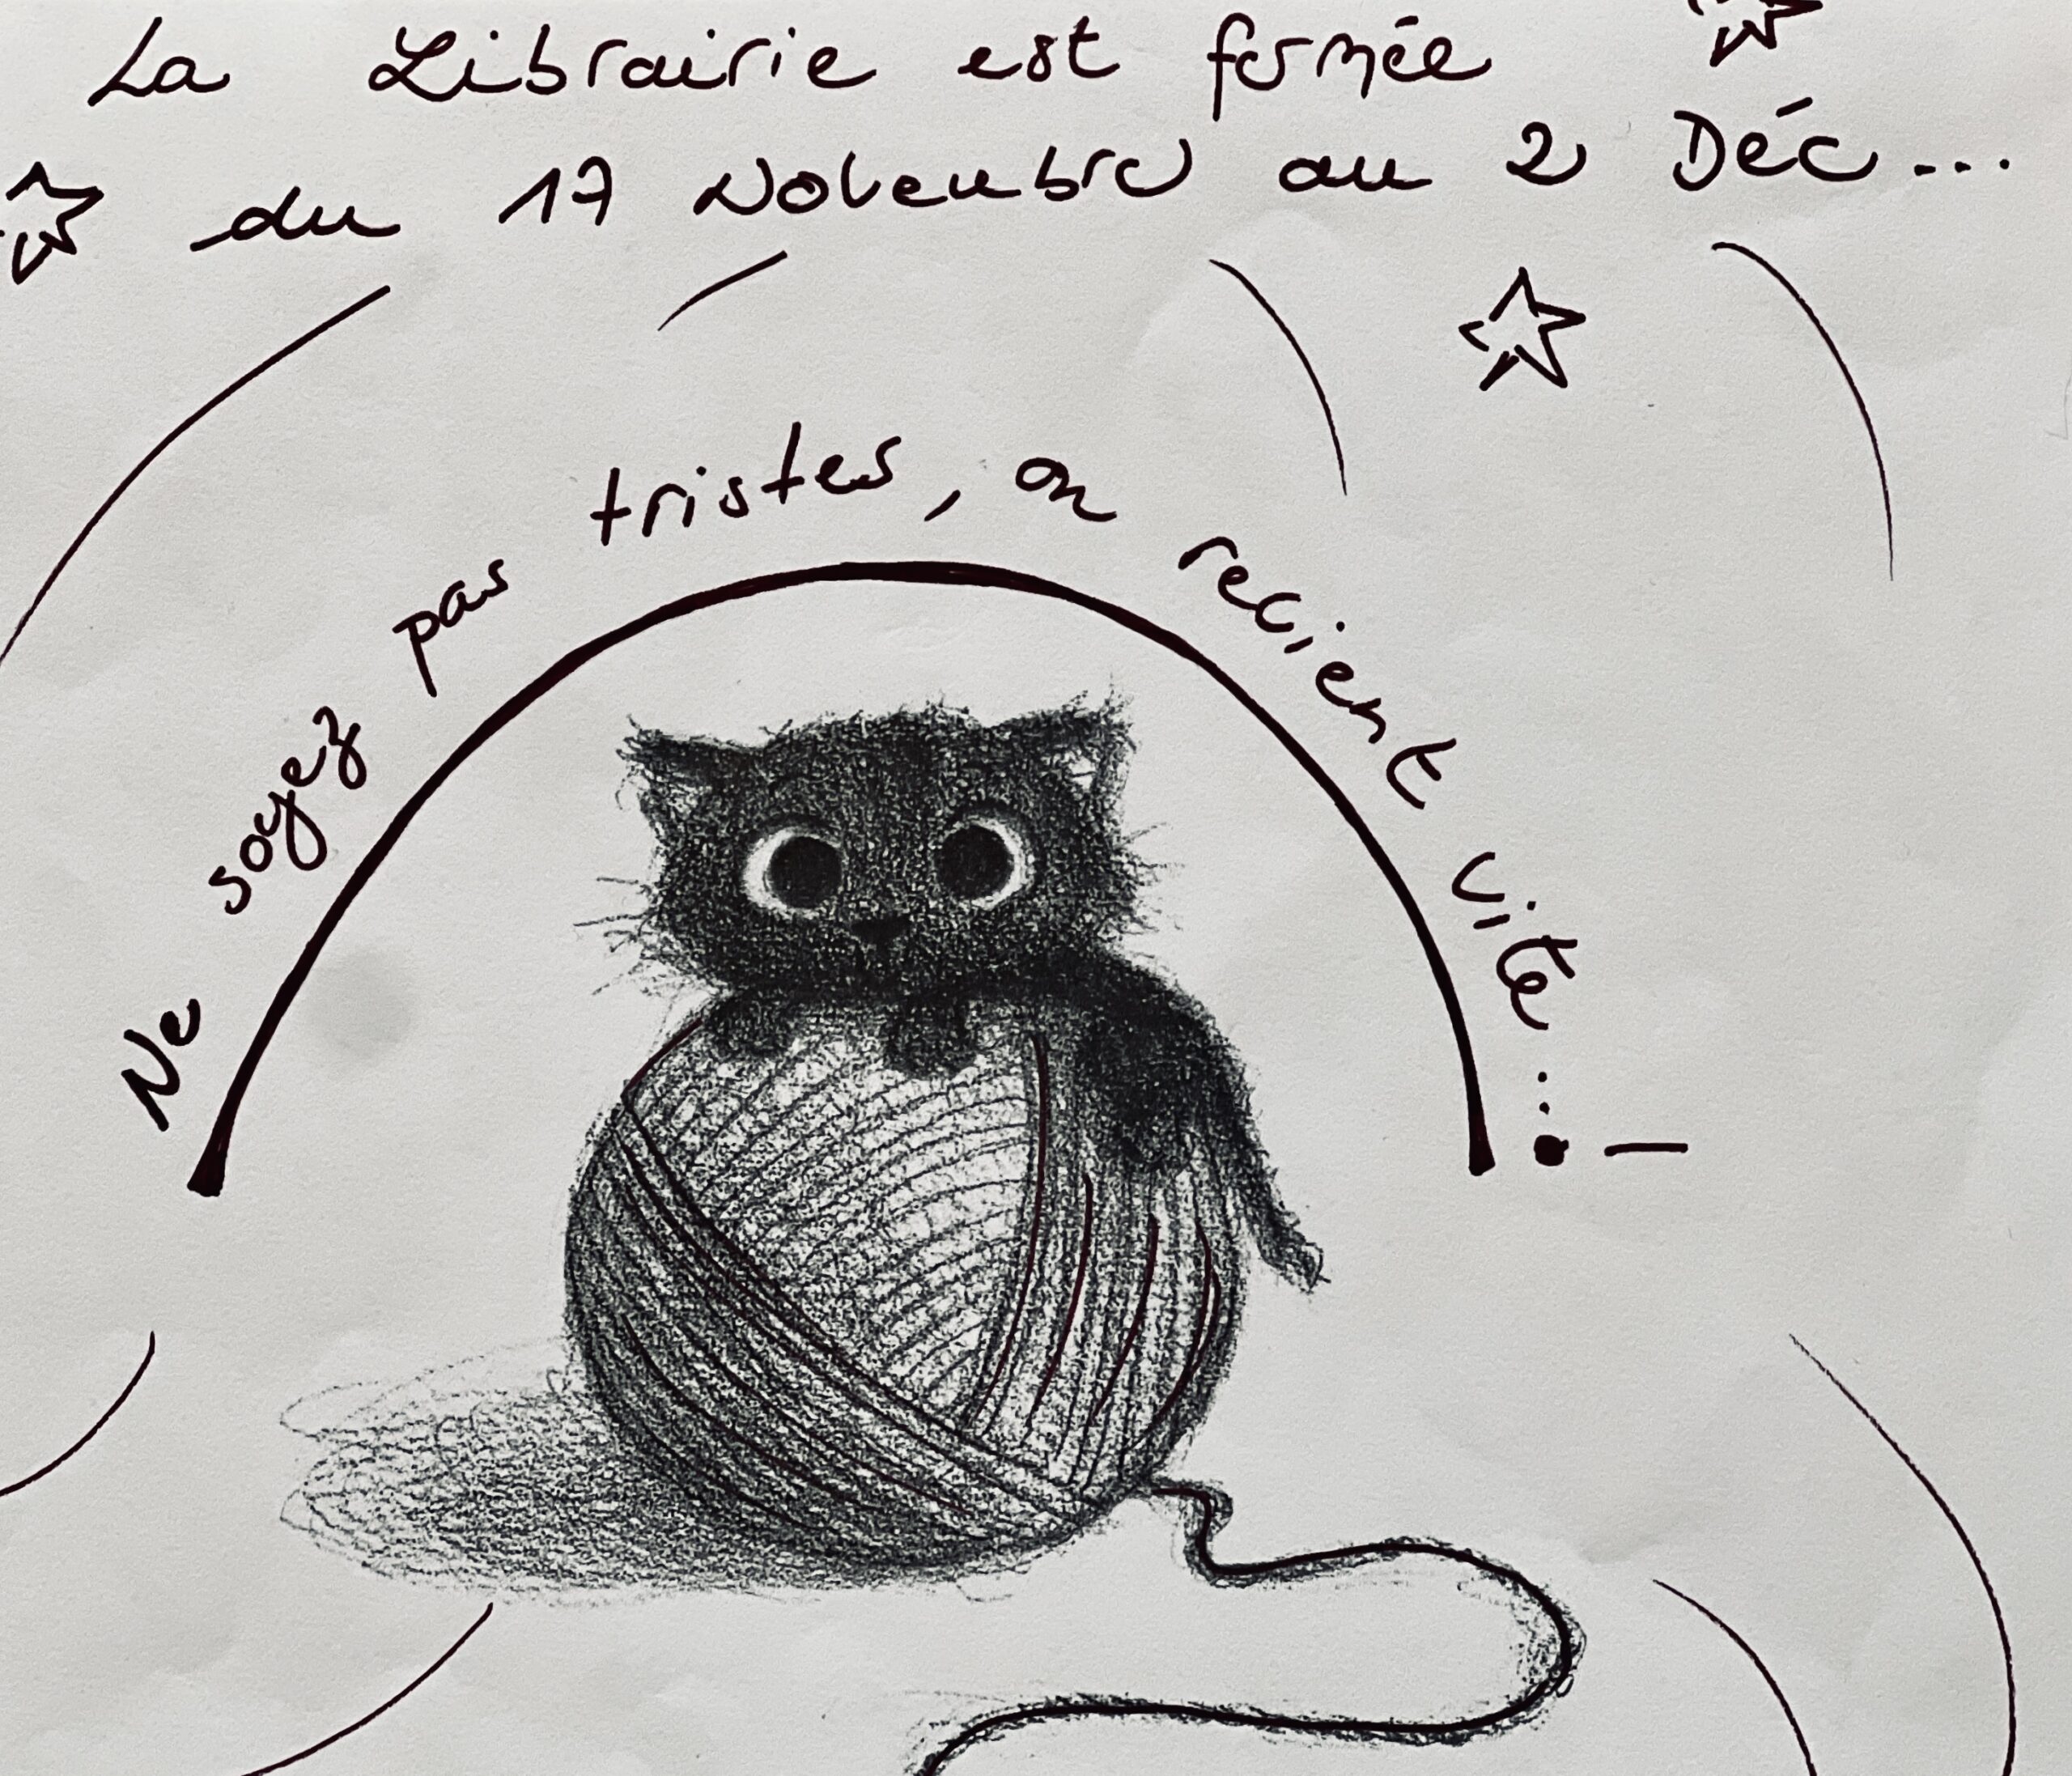 La Librairie est fermée
du 17 Novembre au 2 Déc...
Ne soyez pas tristes, on revient vite...